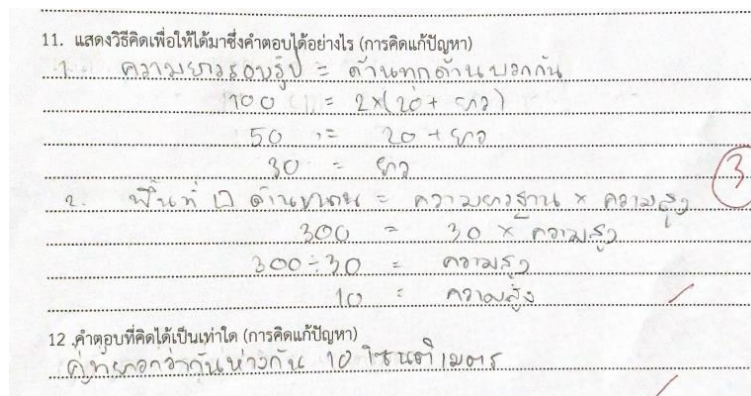 11. แสดงวิธีคิดเพื่อให้ได้มาซึ่งคำตอบได้อย่างไร (การคิดแก้ปัญหา)
1. ความยาวรอบรูป = ด้านทุกด้านบวกกัน
100 = 2×(20 + ยาว)
50 = 20 + ยาว
30 = ยาว
3
2. พื้นที่ ▱ ด้านขนาน = ความยาวฐาน × ความสูง
300 = 30 × ความสูง
300÷30 = ความสูง
10 = ความสูง
12 .คำตอบที่คิดได้เป็นเท่าใด (การคิดแก้ปัญหา)
คู่ที่ยาวกว่ากันห่างกัน 10 เซนติเมตร